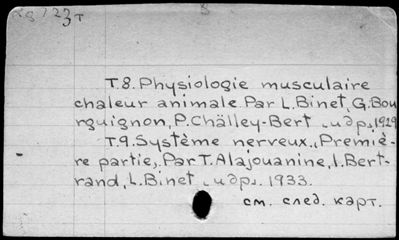 Т.8. Physiologie musculaire
chaleur animale. Par L. Binet, G. Bou
rguignon, P. Chälley-Bert и др., 1929
Т.9. Système nerveux. (Premiè-
re partie). Par T. Alajouanine, I. Bert-
rand, L. Binet и др. 1933.
см. след. карт.